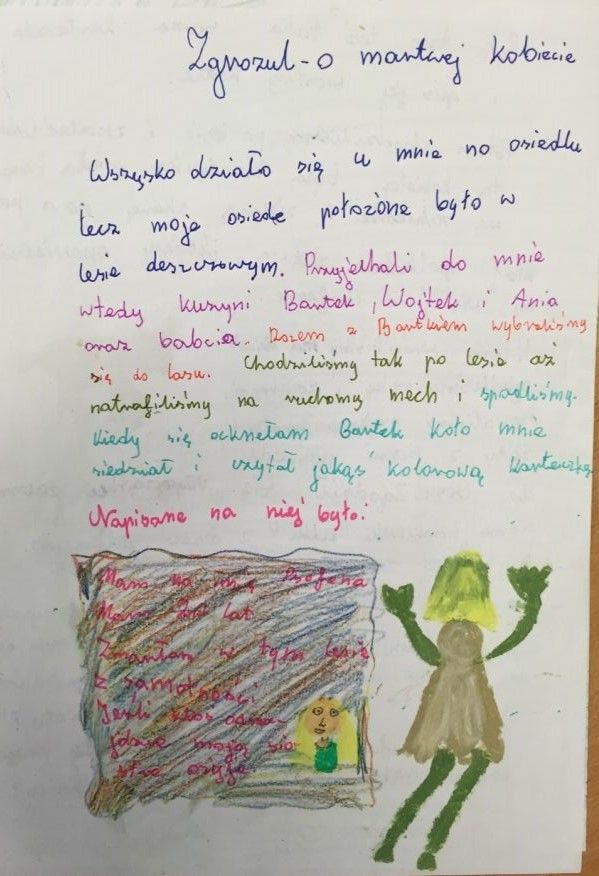 Zgrozul-o martwej kobiecie
Wszysko działo się u mnie no osiedlu
lecz moje osiedle położone było w
lesie deszczowym. Przyjethali do mnie
wtedy kuzyni Bartek, Wojtek i Ania
oraz babcia. Rozem z Bartkiem wybraliśmy
się do lasu. Chodziliśmy tak po lesie aż
natrafiliśmy na ruchomy mech i spadliśmy.
Kiedy się ocknełam Bartek koło mnie
siedział i czytał jakąś kolorową karteczkę
Napisane na niej było:
Mam na imię
Mam lat
Zmarłam w tym lesie
z samotności
Jeśli ktoś odna-
jdzie moją sio-
strę ożyję